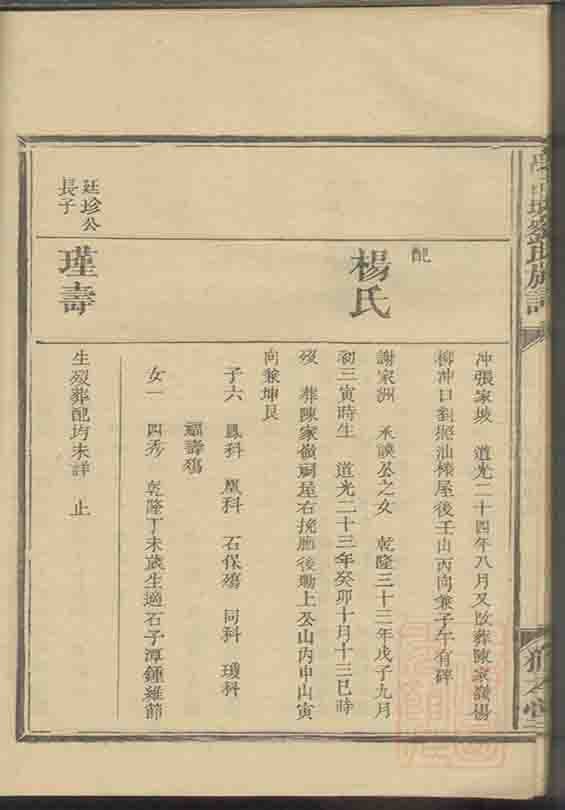 冲張家坡 道光二十四年八月又改葬陳家嶺楊
柳冲口對㨆油榛屋後壬山丙向兼子午有碑
配
楊氏
謝家洲 承謨公之女 乾隆三十三年戊子九月
初三寅時生 道光二十三年癸卯十月十三巳時
歿 葬陳家嶺祠屋右挽廊後墈上公山內申山寅
向兼坤艮
子六 鳳科 鳳科 石保殤 同科 璦科
福壽殤
女一 四秀 乾隆丁未歲生適石子潭鍾維節
廷珍公
長子
瑾壽
生歿葬配均未詳 止
氏族譜